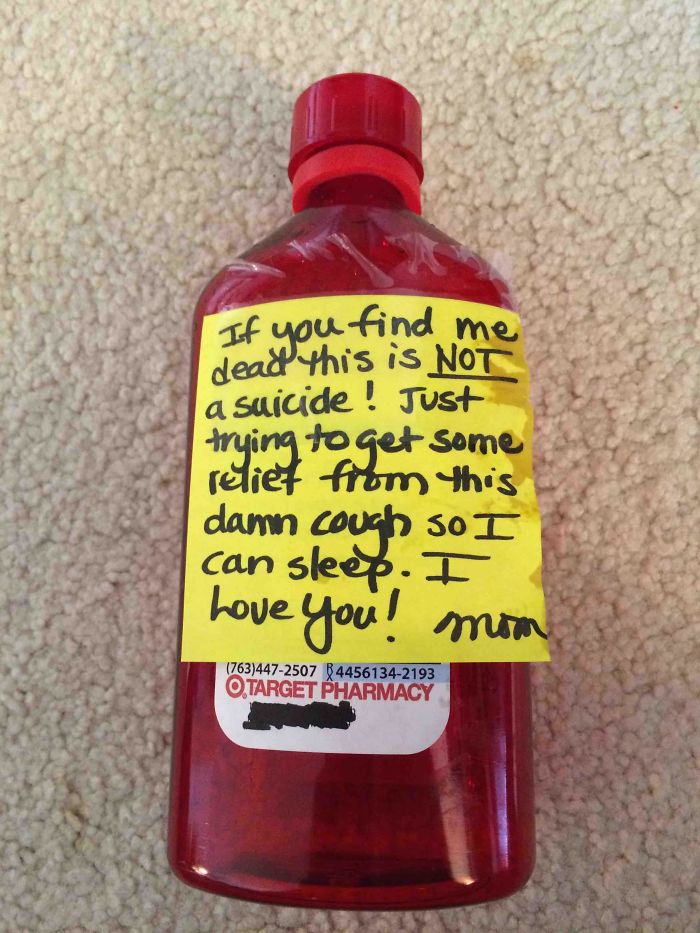 If you find me
dead this is NOT
a suicide! Just
trying to get some
relief from this
damn cough so I
can sleep. I
Love You! mom
(763)447-2507 RX 4456134-2193
TARGET PHARMACY